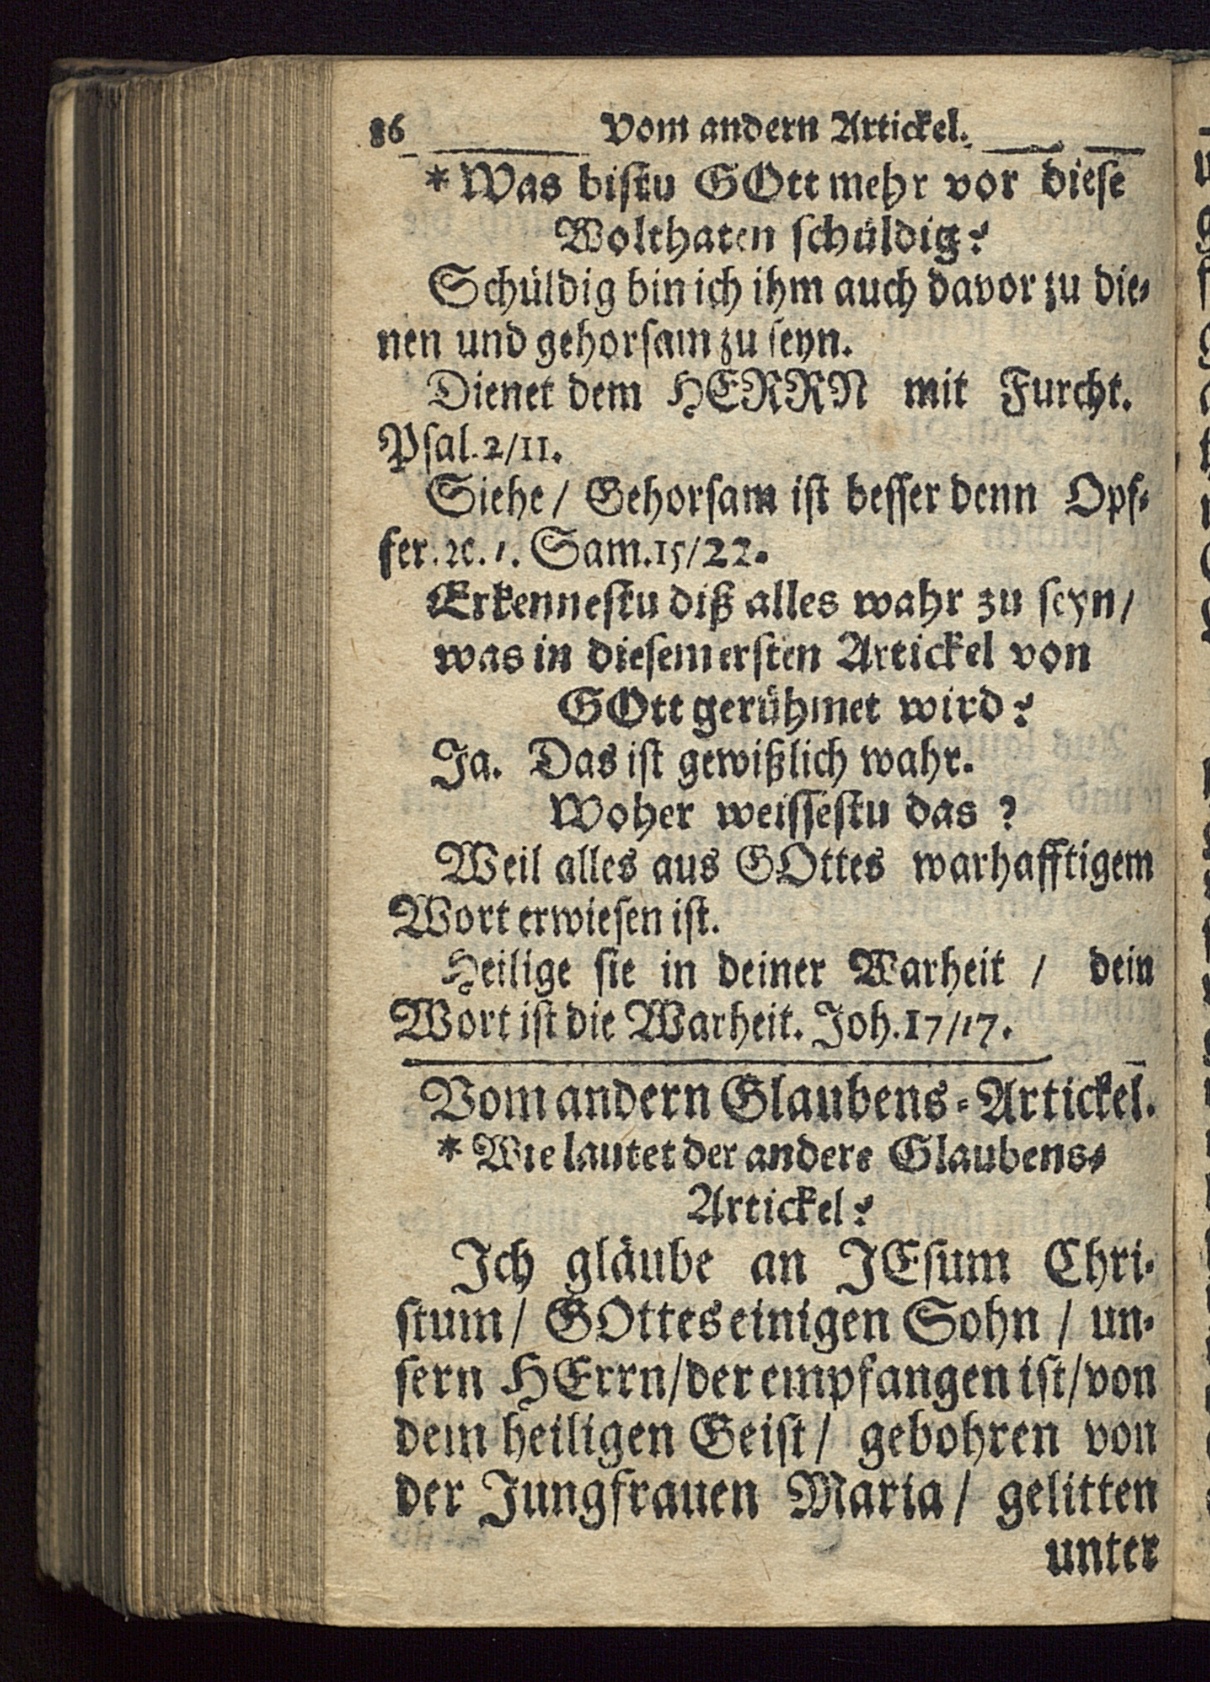 86 Vom andern Artickel.
* Was bistu GOtt mehr vor diese
Wolthaten schüldig?
Schüldig bin ich ihm auch davor zu die-
nen und gehorsam zu seyn.
Dienet dem HERRN mit Furcht.
Psal. 2/11.
Siehe / Gehorsam ist besser denn Opf-
fer. ꝛc. 1. Sam. 15/22.
Erkennestu diß alles wahr zu seyn /
was in diesem ersten Artickel von
GOtt gerühmet wird?
Ja. Das ist gewißlich wahr.
Woher weissestu das?
Weil alles aus GOttes warhafftigem
Wort erwiesen ist.
Heilige sie in deiner Warheit / dein
Wort ist die Warheit. Joh. 17/17.
Vom andern Glaubens-Artickel.
* Wie lautet der andere Glaubens-
Artickel?
Ich gläube an JEsum Chri-
stum / GOttes einigen Sohn / un-
sern HErrn / der empfangen ist / von
dem heiligen Geist / gebohren von
der Jungfrauen Maria / gelitten
unter